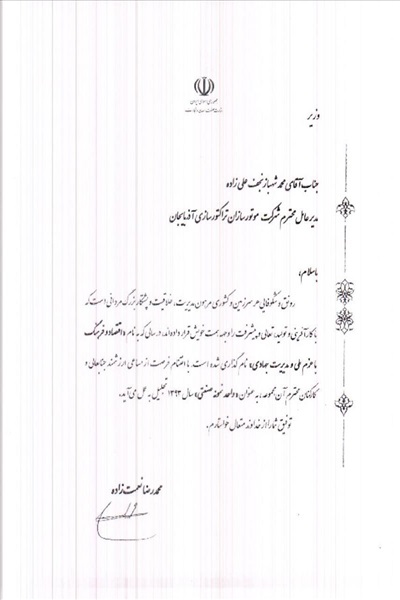 جمهوری اسلامی ایران
وزارت صنعت، معدن و تجارت
وزیر
جناب آقای محمد شهباز نجف علی زاده
مدیرعامل محترم شرکت موتورسازان تراکتورسازی آذربایجان
باسلام،
رونق و شکوفایی هر سرزمین و کشوری مرهون مدیریت، خلاقیت و پشتکار بزرگ مردانی است که
با کارآفرینی و تولید، تعالی و پیشرفت را وجهه همت خویش قرار داده‌اند، در سالی که به نام «اقتصاد و فرهنگ
با عزم ملی و مدیریت جهادی» نام گذاری شده است. با اغتنام فرصت از مساعی ارزشمند جنابعالی و
کارکنان محترم آن مجموعه، به عنوان «واحد نمونه صنعتی» سال ۱۳۹۳ تجلیل به عمل می‌آید.
توفیق شما را از خداوند متعال خواستارم.
محمدرضا نعمت‌زاده